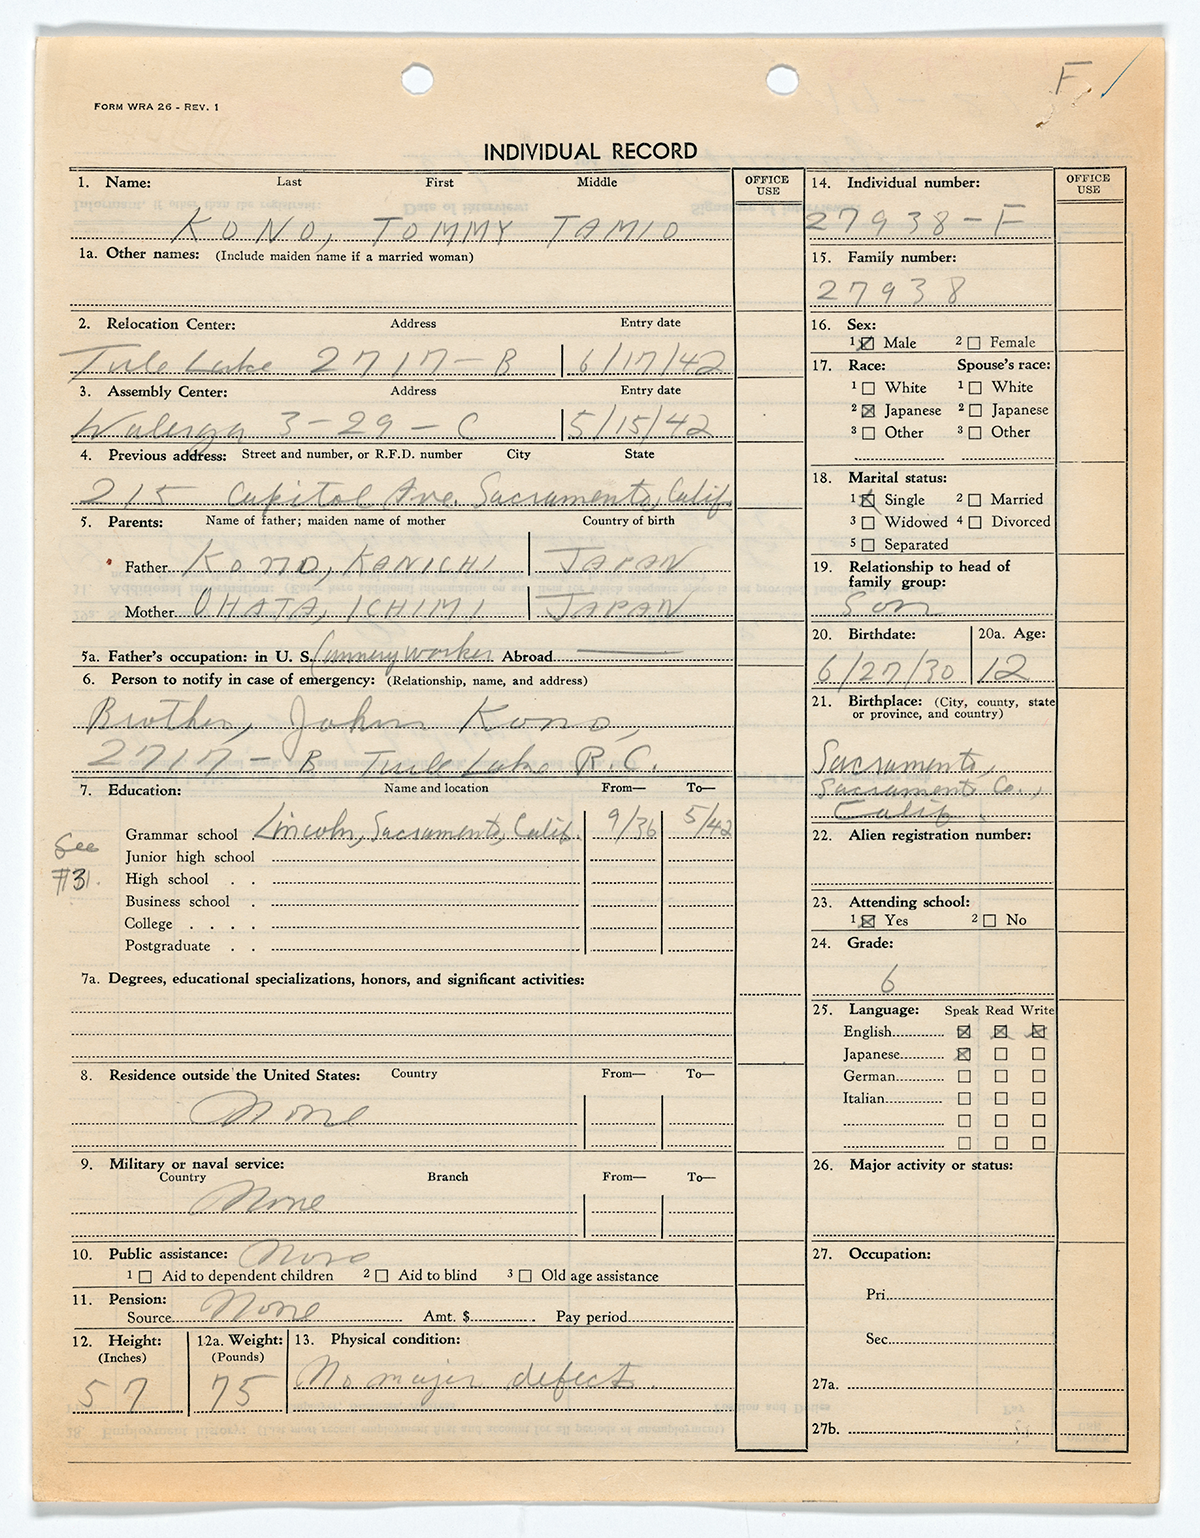 F /
FORM WRA 26 - REV. 1
INDIVIDUAL RECORD
1. Name: Last First Middle
KONO, TOMMY TAMIO
1a. Other names: (Include maiden name if a married woman)
2. Relocation Center: Address Entry date
Tule Lake 2717-B 6/17/42
3. Assembly Center: Address Entry date
Walerga 3-29-C 5/15/42
4. Previous address: Street and number, or R.F.D. number City State
215 Capitol Ave. Sacramento, Calif.
5. Parents: Name of father; maiden name of mother Country of birth
Father KONO, KANICHI JAPAN
Mother OHATA, ICHIMI JAPAN
5a. Father's occupation: in U. S. Cannery Worker Abroad
6. Person to notify in case of emergency: (Relationship, name, and address)
Brother, John Kono,
2717-B Tule Lake R.C.
7. Education: Name and location From— To—
Grammar school Lincoln, Sacramento, Calif. 9/36 5/42
See
#31.
Junior high school
High school . .
Business school .
College . . . .
Postgraduate . .
7a. Degrees, educational specializations, honors, and significant activities:
8. Residence outside the United States: Country From— To—
None
9. Military or naval service:
Country Branch From— To—
None
10. Public assistance: None
1 ☐ Aid to dependent children 2 ☐ Aid to blind 3 ☐ Old age assistance
11. Pension:
Source None Amt. $ Pay period
12. Height: 12a. Weight: 13. Physical condition:
(Inches) (Pounds)
57 75 No major defect.
OFFICE
USE
14. Individual number:
27938-F
15. Family number:
27938
16. Sex:
1 ☒ Male 2 ☐ Female
17. Race: Spouse's race:
1 ☐ White 1 ☐ White
2 ☒ Japanese 2 ☐ Japanese
3 ☐ Other 3 ☐ Other
18. Marital status:
1 ☒ Single 2 ☐ Married
3 ☐ Widowed 4 ☐ Divorced
5 ☐ Separated
19. Relationship to head of
family group:
Son
20. Birthdate: 20a. Age:
6/27/30 12
21. Birthplace: (City, county, state
or province, and country)
Sacramento,
Sacramento Co.,
Calif.
22. Alien registration number:
23. Attending school:
1 ☒ Yes 2 ☐ No
24. Grade:
6
25. Language: Speak Read Write
English ☒ ☒ ☒
Japanese ☒ ☐ ☐
German ☐ ☐ ☐
Italian ☐ ☐ ☐
☐ ☐ ☐
☐ ☐ ☐
26. Major activity or status:
27. Occupation:
Pri.
Sec.
27a.
27b.
OFFICE
USE